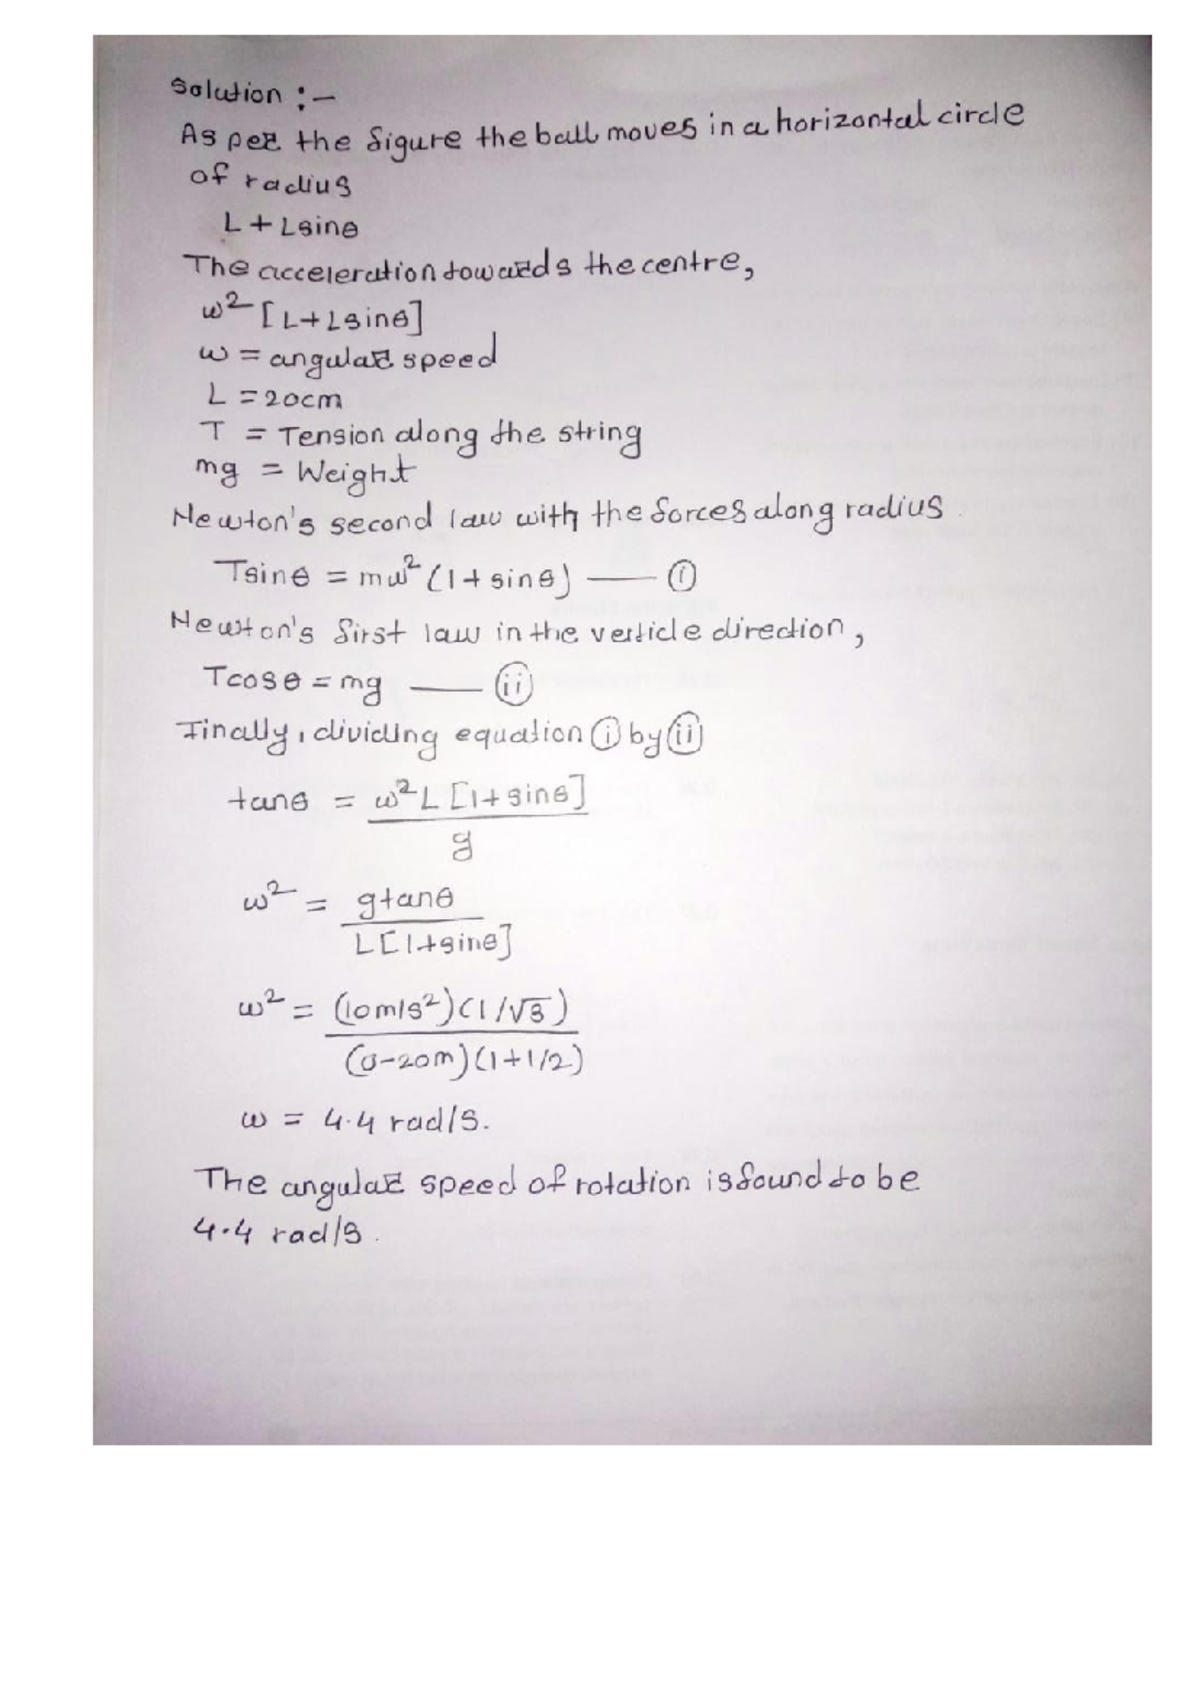 Solution :-
As per the figure the ball moves in a horizontal circle
of radius
L + Lsinθ
The acceleration towards the centre,
ω² [L+Lsinθ]
ω = angular speed
L = 20cm
T = Tension along the string
mg = Weight
Newton's second law with the forces along radius
Tsinθ = mω² (1+ sinθ) —— (i)
Newton's first law in the verticle direction,
Tcosθ = mg —— (ii)
Finally, dividing equation (i) by (ii)
tanθ = ω² L [1+ sinθ]
g
ω² = gtanθ
L[1+sinθ]
ω² = (10m/s²)(1/√3)
(0-20m)(1+1/2)
ω = 4.4 rad/s.
The angular speed of rotation is found to be
4.4 rad/s.